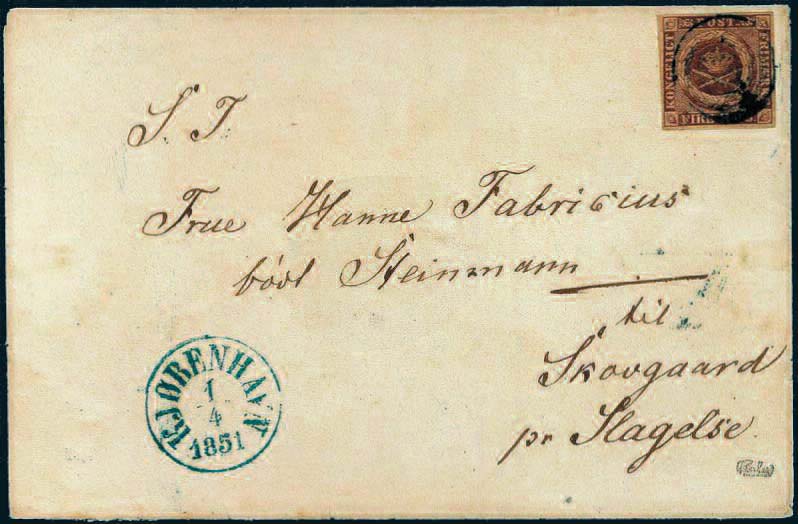 KONGELIGT POST FRIMÆRKE
FIRE
S. T.
Frue Hanne Fabricius
född Steinmann
til
Skovgaard
pr Slagelse.
KJØBENHAVN
1
4
1851